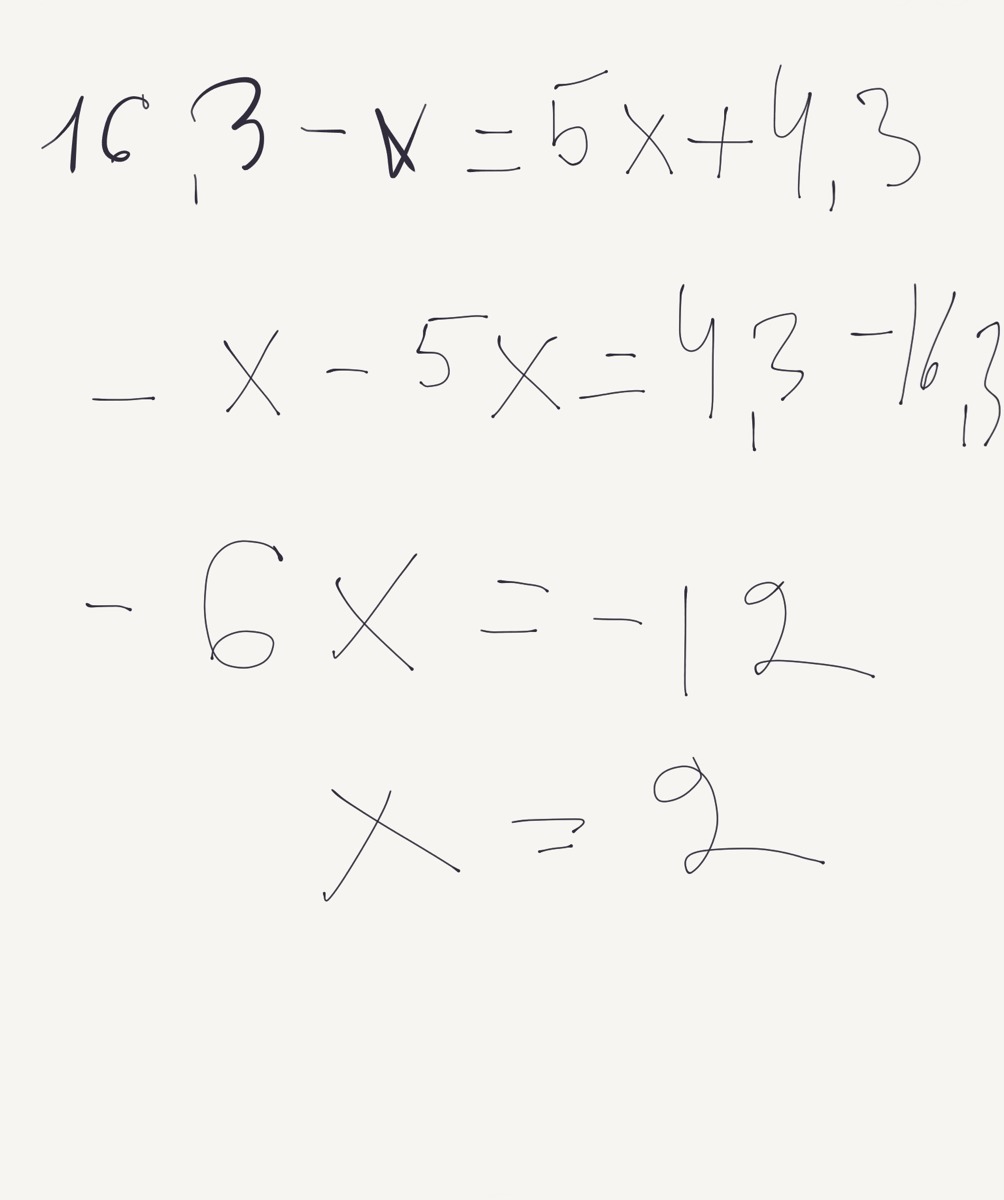 16,3 - x = 5x + 4,3
- x - 5x = 4,3 - 16,3
- 6x = - 12
x = 2